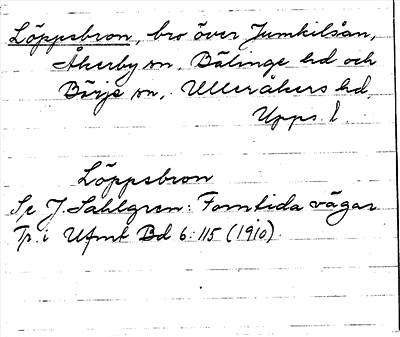 Löppsbron, bro över Jumkilsån,
Åkerby sn, Bälinge hd och
Börje sn, Ulleråkers hd,
Upps. l.
Löppsbron
Se J. Sahlgren: Forntida vägar
Tr. i Ufmt Bd 6:115 (1910).